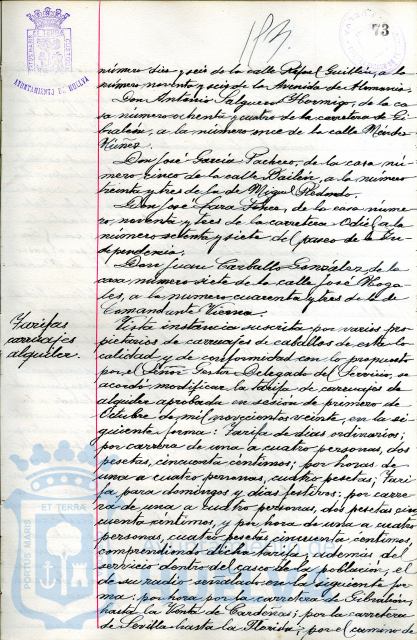 73
AYUNTAMIENTO DE HUELVA
número diez y seis de la calle Rafael Guillén, a la
número noventa y seis de la Avenida de Alemania.
Don Antonio Salguero Hormigo, de la ca
sa número ochenta y cuatro de la carretera de Gi
braleón, a la número once de la calle Méndez
Núñez.
Don José García Pachero, de la casa nú
mero cinco de la calle Bailén, a la número
treinta y tres de la de Miguel Redondo.
Don José Lara, de la casa núme
ro, noventa y tres de la carretera Odiel, a la
número setenta y siete del paseo de la In
dependencia.
Don Juan Carballo González, de la
casa número siete de la calle José Noga
les, a la número cuarenta y tres de la de
Comandante Viema.
Tarifas
carruajes
alquiler.
Vista instancia suscrita por varios pro
pietarios de carruajes de caballos de esta lo
calidad y de conformidad con lo propuesto
por el Señor Gestor Delegado del Servicio, se
acordó modificar la tarifa de carruajes de
alquiler aprobada en sesión de primero de
Octubre de mil novecientos veinte, en la si
guiente forma: Tarifa de días ordinarios;
por carrera de una a cuatro personas, dos
pesetas, cincuenta céntimos; por horas de
una a cuatro personas, cuatro pesetas; Tari
fa para domingos y días festivos: por carre
ra de una a cuatro personas, dos pesetas cin
cuenta céntimos, y por hora de una a cuatro
personas, cuatro pesetas cincuenta céntimos,
comprendiendo dicha tarifa además del
servicio dentro del casco de la población, el
de su radio señalado en la siguiente for
ma: por hora por la carretera de Gibraleón
hasta la Venta de Cárdenas; por la carretera
de Sevilla hasta la Florida; por el camino
PORTUS MARIS ET TERRA